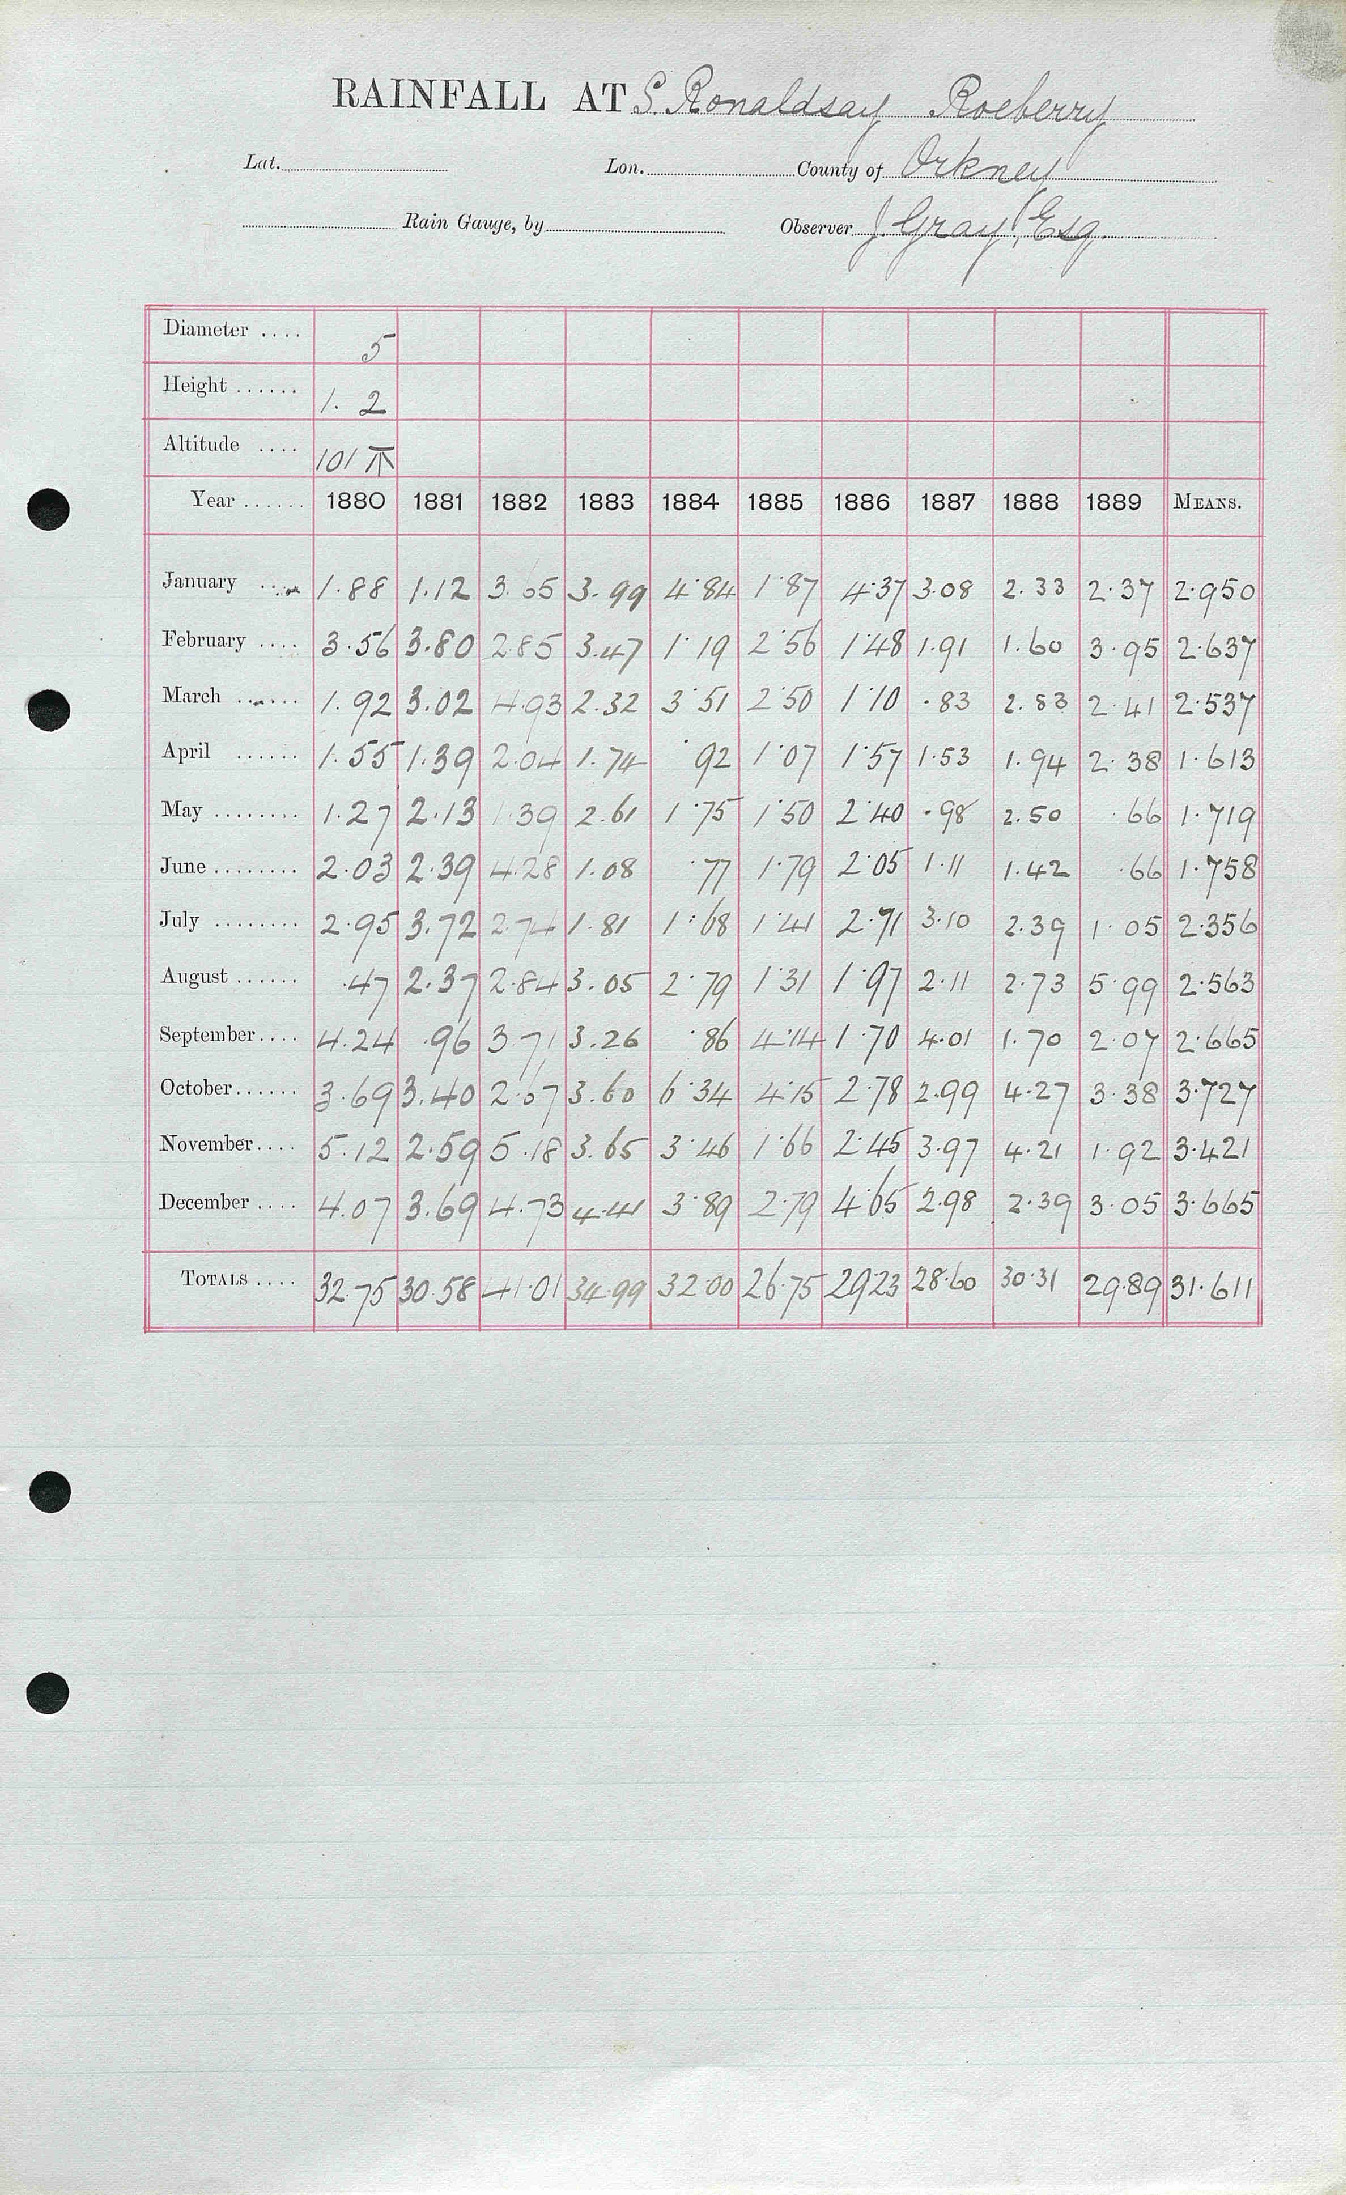 RAINFALL AT S. Ronaldsay Roeberry
Lat. Lon. County of Orkney
Rain Gauge, by Observer J. Gray, Esq.
Diameter .... 5
Height ...... 1. 2
Altitude .... 101
Year ...... 1880 1881 1882 1883 1884 1885 1886 1887 1888 1889 MEANS.
January .... 1.88 1.12 3.65 3.99 4.84 1.87 4.37 3.08 2.33 2.37 2.950
February .... 3.56 3.80 2.85 3.47 1.19 2.56 1.48 1.91 1.60 3.95 2.637
March ...... 1.92 3.02 4.93 2.32 3.51 2.50 1.10 .83 2.83 2.41 2.537
April ...... 1.55 1.39 2.04 1.74 .92 1.07 1.57 1.53 1.94 2.38 1.613
May ........ 1.27 2.13 1.39 2.61 1.75 1.50 2.40 .98 2.50 .66 1.719
June ........ 2.03 2.39 4.28 1.08 .77 1.79 2.05 1.11 1.42 .66 1.758
July ........ 2.95 3.72 2.74 1.81 1.68 1.41 2.71 3.10 2.39 1.05 2.356
August ...... .47 2.37 2.84 3.05 2.79 1.31 1.97 2.11 2.73 5.99 2.563
September .... 4.24 .96 3.71 3.26 .86 4.14 1.70 4.01 1.70 2.07 2.665
October ...... 3.69 3.40 2.67 3.60 6.34 4.15 2.78 2.99 4.27 3.38 3.727
November .... 5.12 2.59 5.18 3.65 3.46 1.66 2.45 3.97 4.21 1.92 3.421
December .... 4.07 3.69 4.73 4.41 3.89 2.79 4.65 2.98 2.39 3.05 3.665
TOTALS .... 32.75 30.58 41.01 34.99 32.00 26.75 29.23 28.60 30.31 29.89 31.611